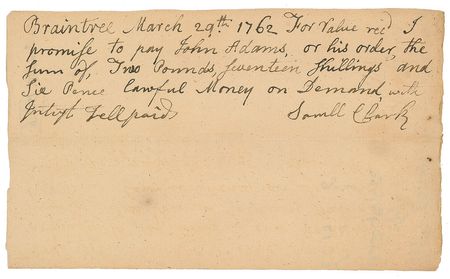 Braintree March 29th. 1762 For Value recd I
promise to pay John Adams, or his order the
Sum of, Two Pounds Seventeen Shillings and
Six Pence Lawful Money on Demand, with
Intrst till paid Samll Clark